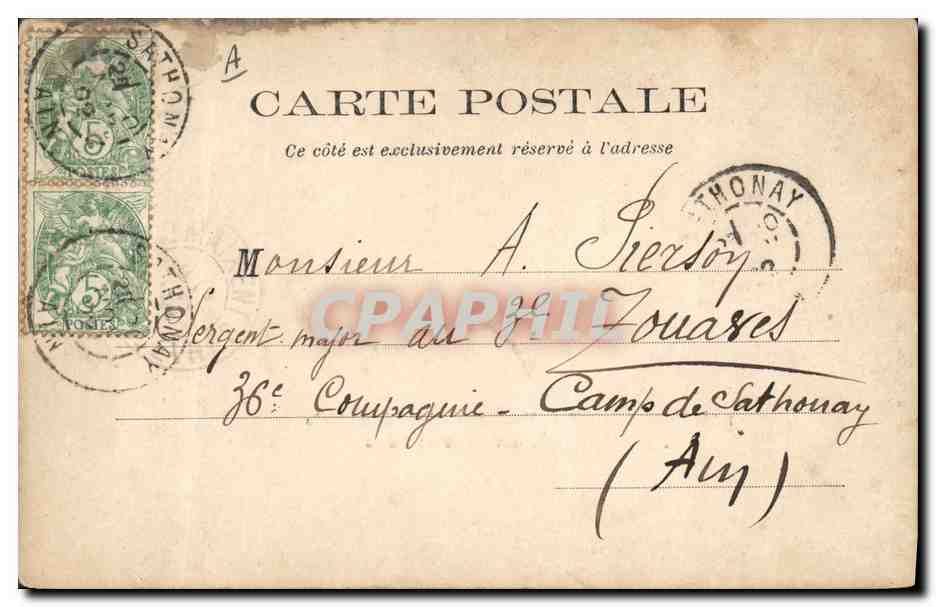 A
CARTE POSTALE
Ce côté est exclusivement réservé à l'adresse
SATHONAY
AIN
5c
POSTES
5c
POSTES
SATHONAY
AIN
SATHONAY
Monsieur A. Piersoy
Sergent major au 3e Zouaves
36e Compagnie - Camp de Sathonay
(Ain)
CPAPHIL